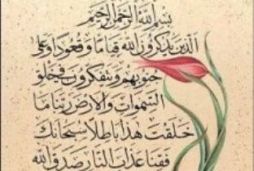 بسم الله الرحمن الرحيم
الذين يذكرون الله قياما وقعودا وعلى
جنوبهم ويتفكرون في خلق
السموات والارض ربنا ما
خلقت هذا باطلا سبحانك
فقنا عذاب النار صدق الله